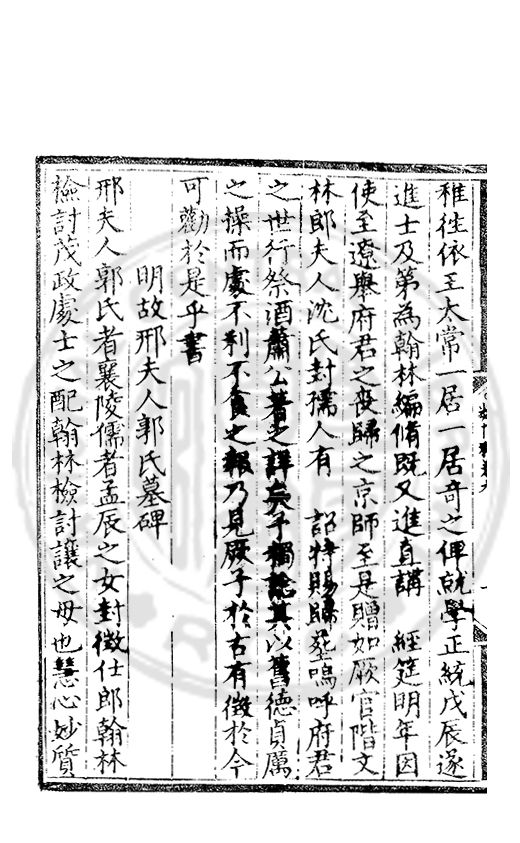 稚往依王太常一居一居奇之俾就學正統戊辰遂
進士及第為翰林編脩既又進直講　經筵明年因
使至遼舉府君之喪歸之京師至是贈如厥官階文
林郎夫人沈氏封孺人有　詔特賜歸塟嗚呼府君
之世行祭酒蕭公著之詳矣予獨誌其以舊德貞厲
之操而處不利不食之報乃見厥子於古有徵於今
可勸於是乎書
明故邢夫人郭氏墓碑
邢夫人郭氏者襄陵儒者孟辰之女封徵仕郎翰林
檢討茂政處士之配翰林檢討讓之母也慧心妙質